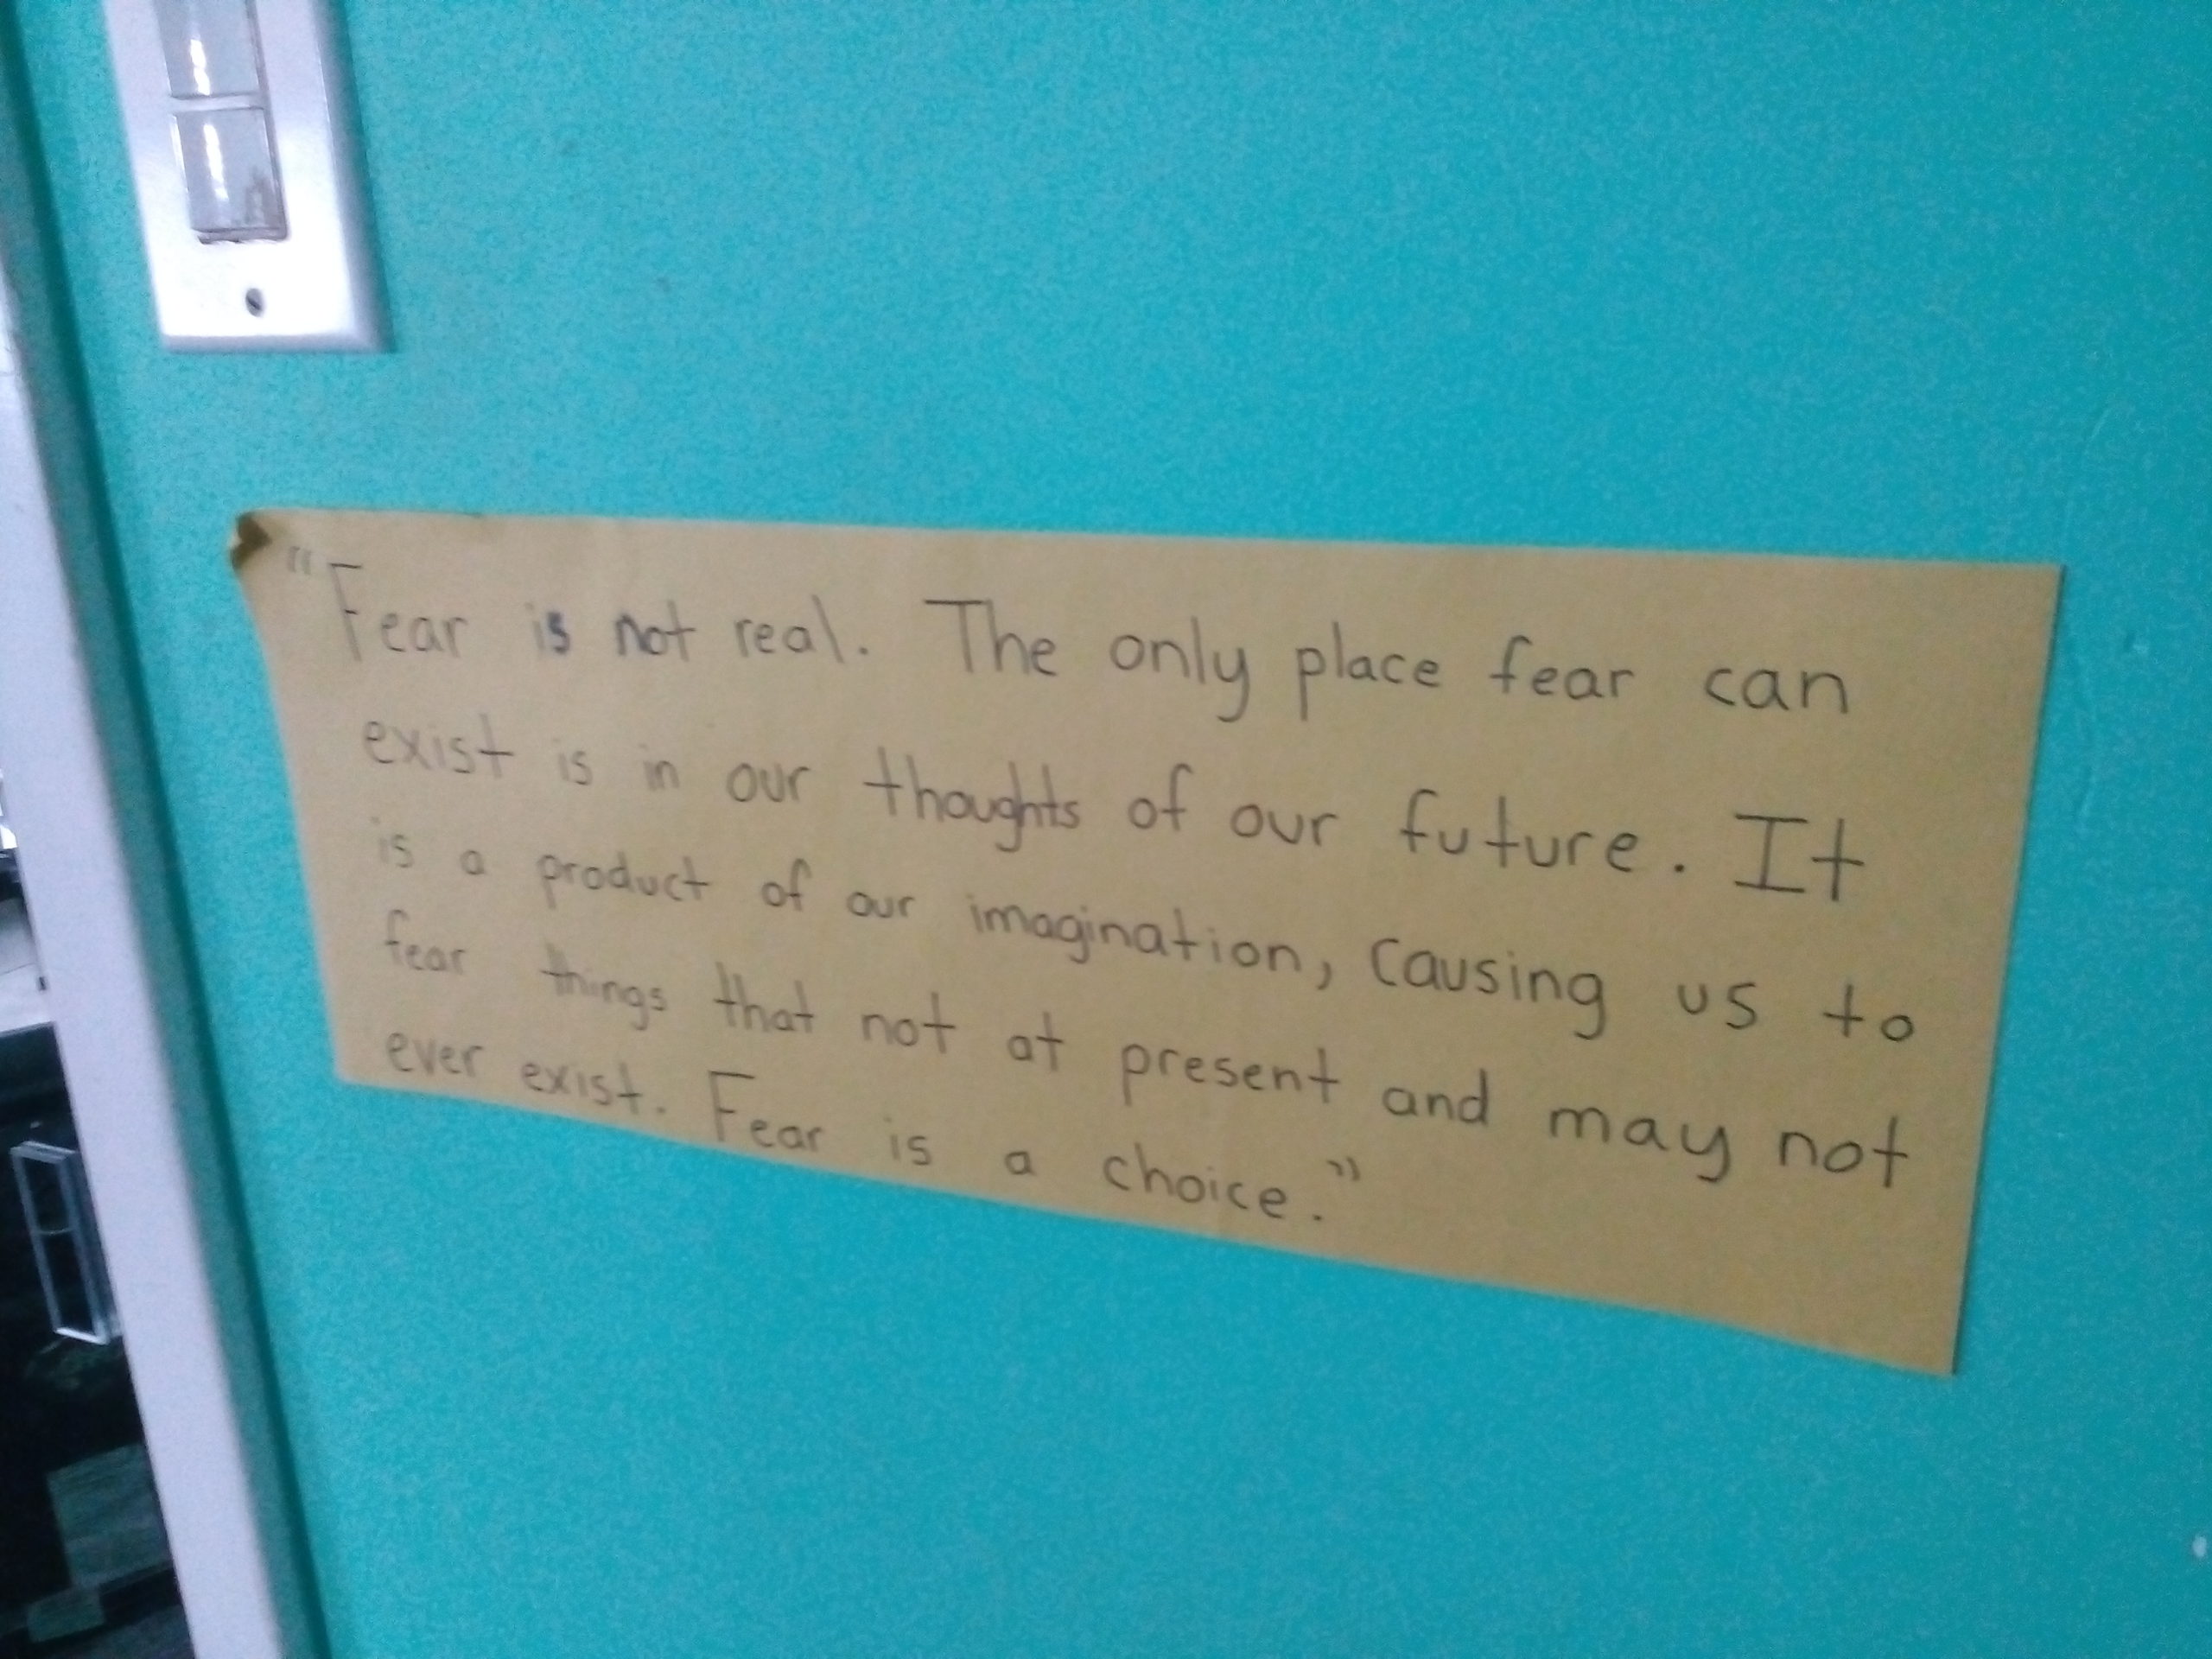 "Fear is not real. The only place fear can
exist is in our thoughts of our future. It
is a product of our imagination, causing us to
fear things that not at present and may not
ever exist. Fear is a choice."